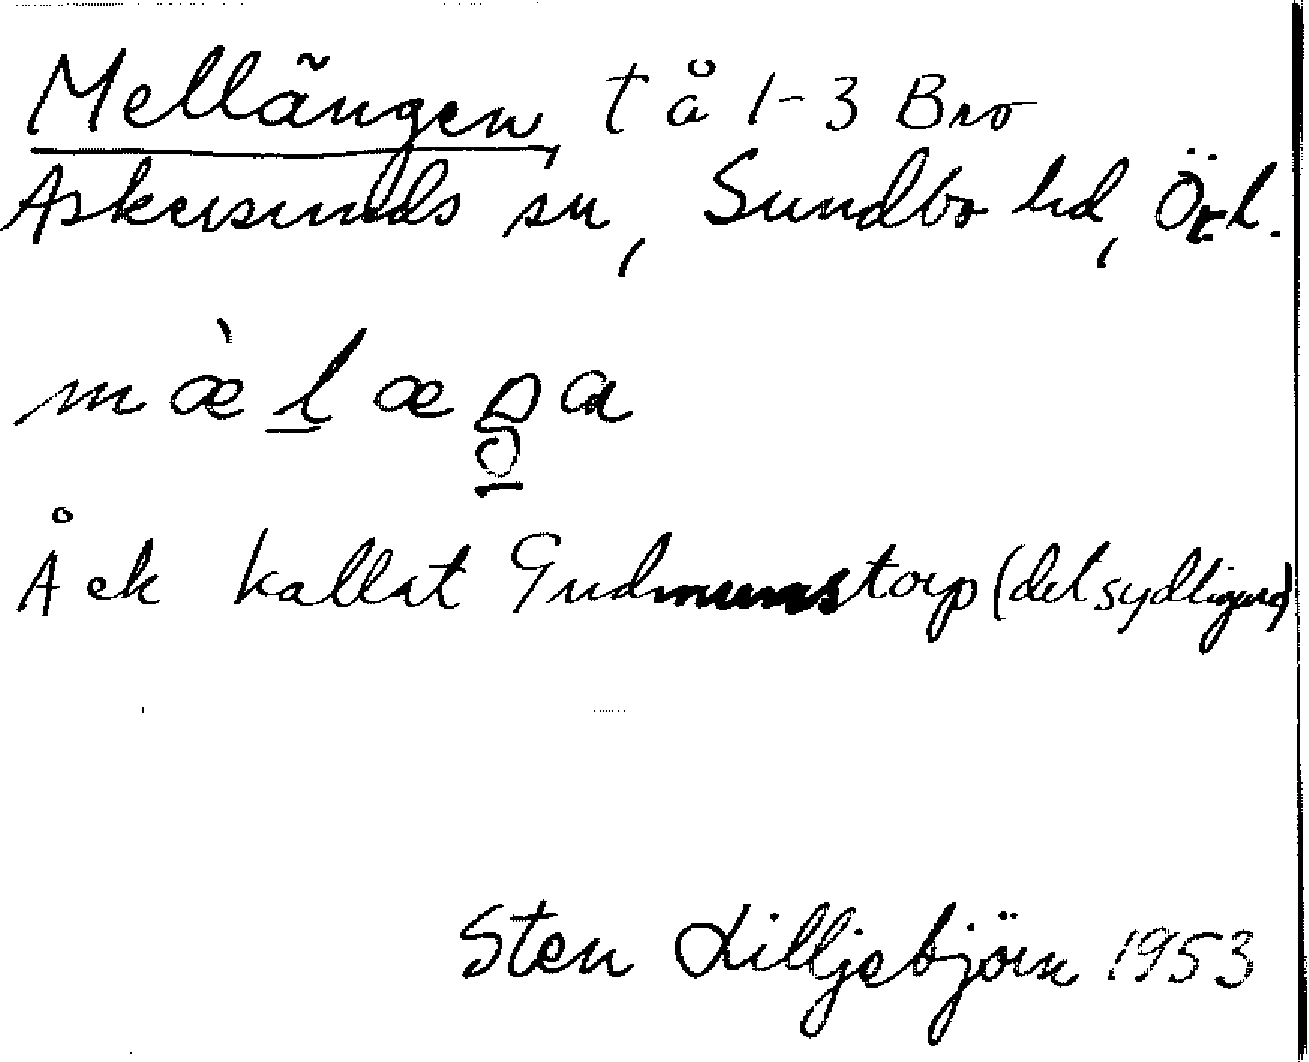 Mellängen, t å 1-3 Bro
Askersunds sn, Sundbo hd, Örl.
mæ̀l̠æŋa
Åek kallat Gudmunstorp (det sydligare)
Sten Lilljebjörn 1953